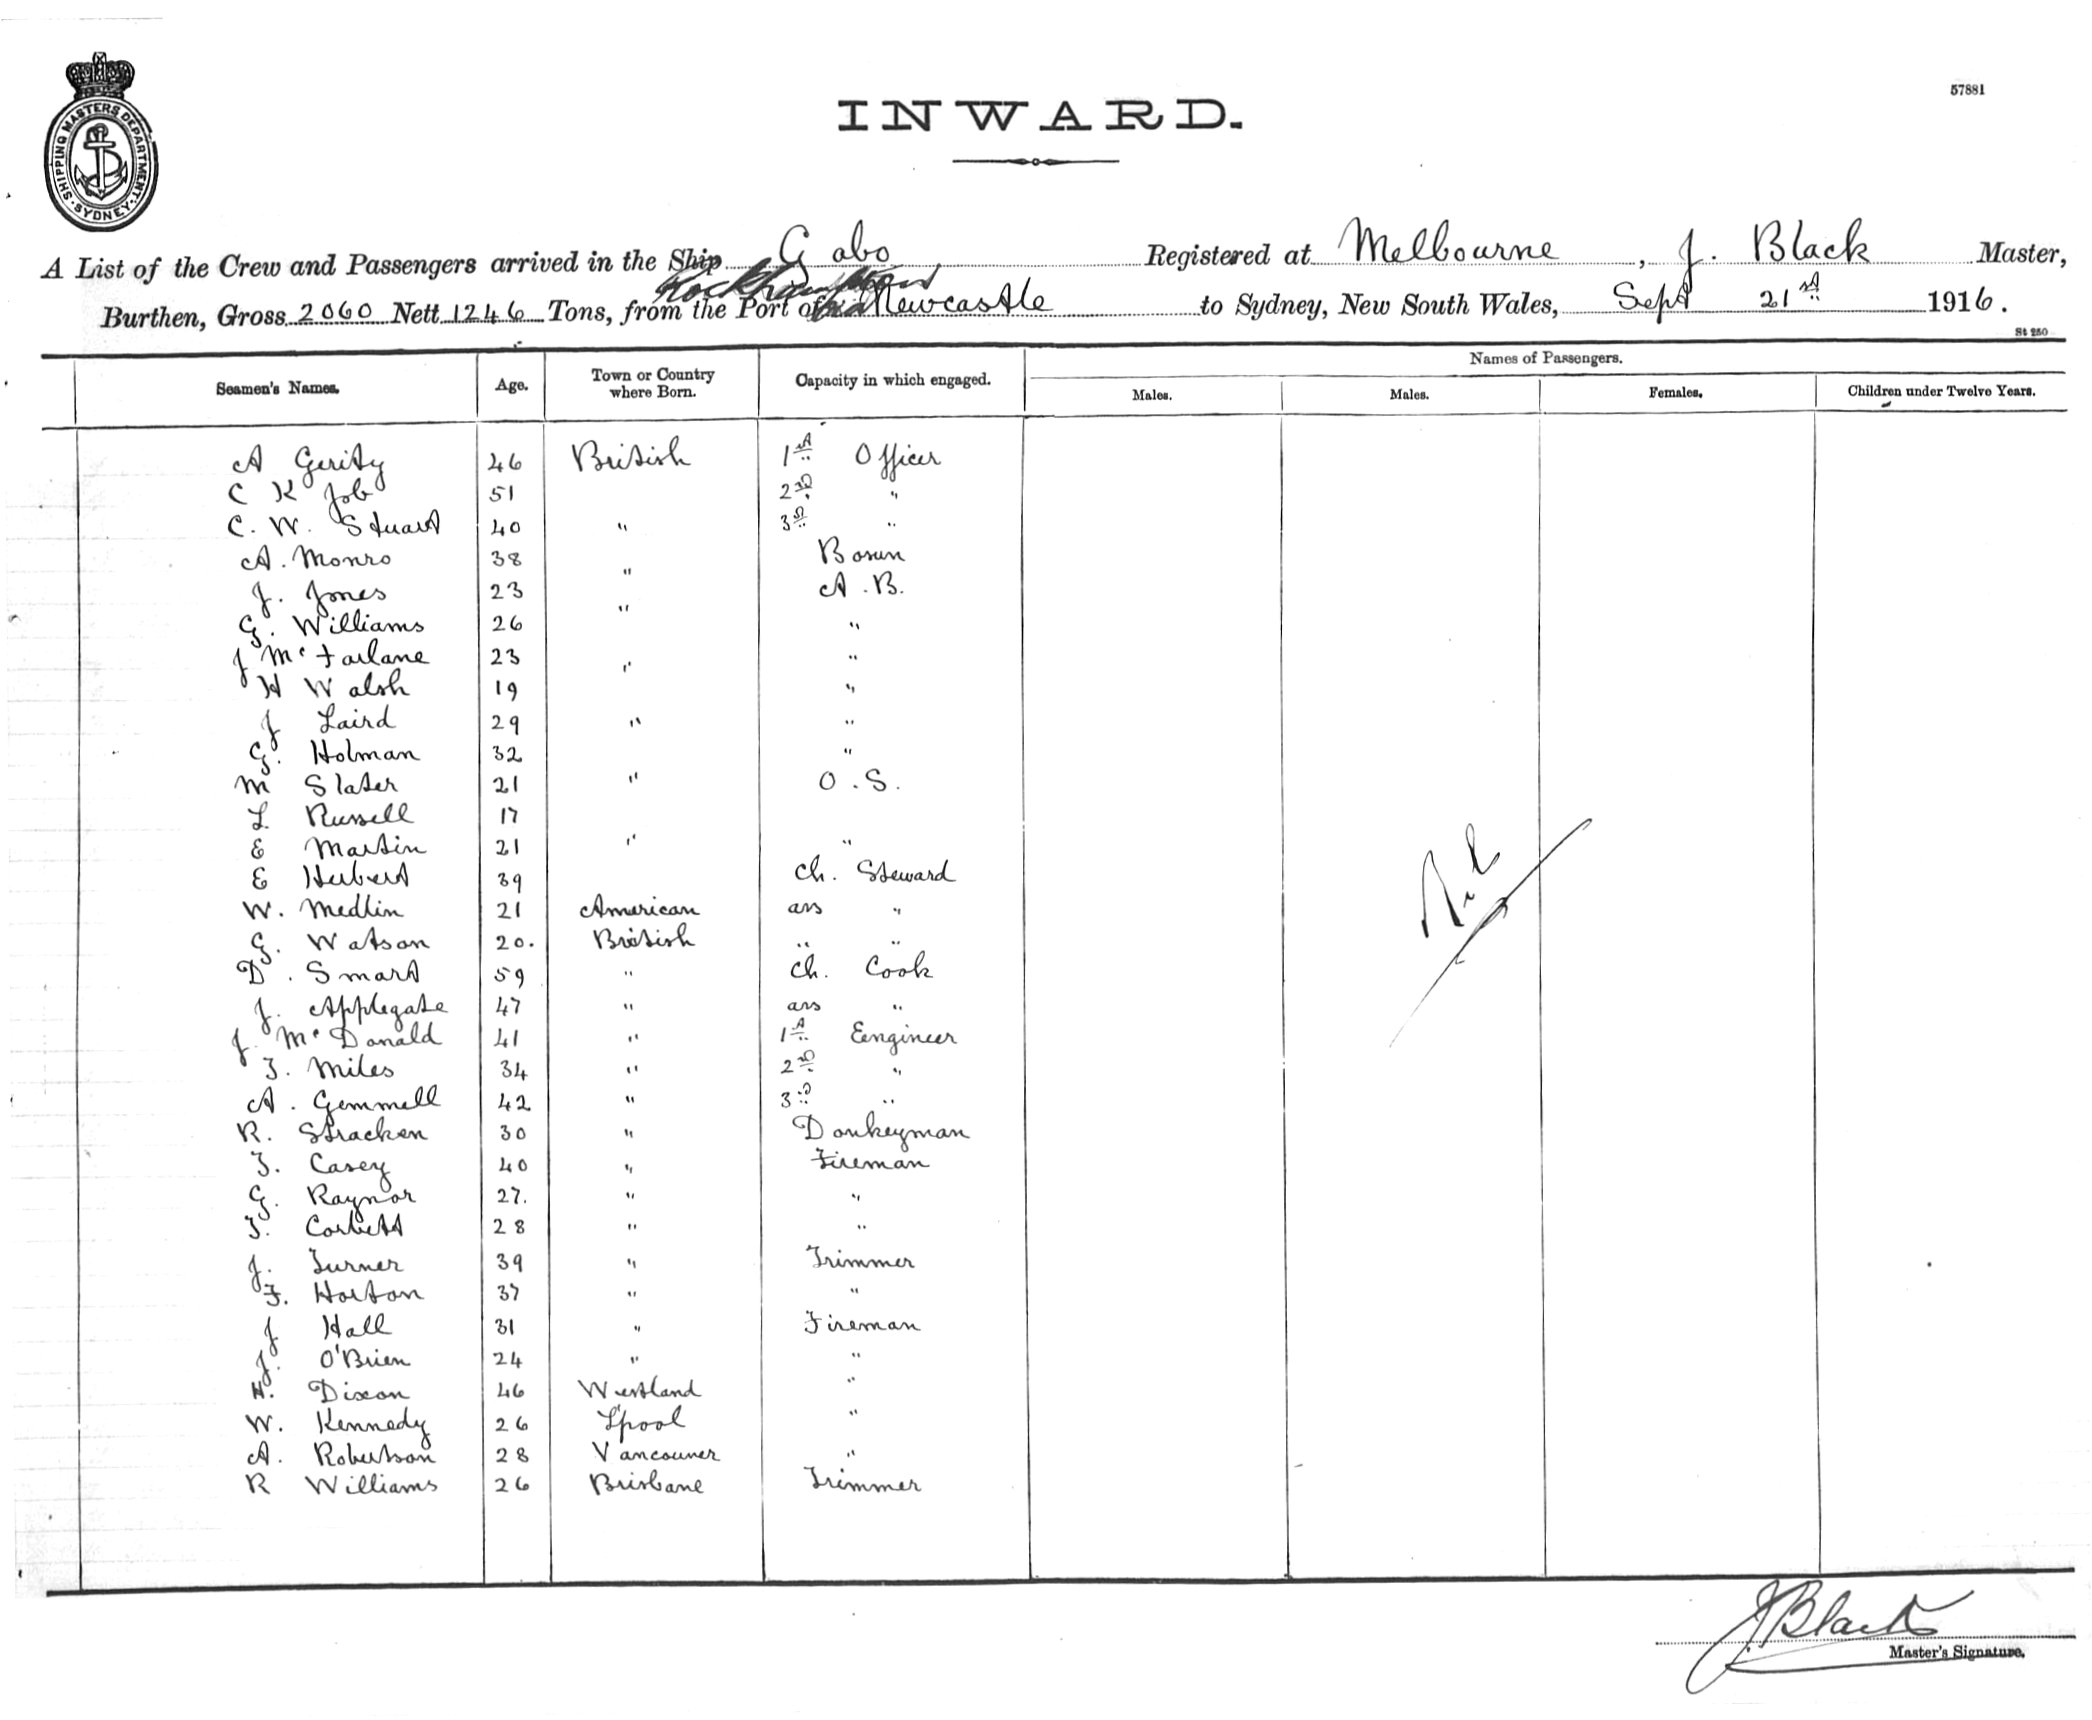 SHIPPING MASTERS DEPARTMENT. SYDNEY.
57881
INWARD.
A List of the Crew and Passengers arrived in the Ship Gabo Registered at Melbourne, J. Black Master,
Rockhampton
Burthen, Gross 2060 Nett 1246 Tons, from the Port of via Newcastle to Sydney, New South Wales, Sept 21st 1916.
St 250
Names of Passengers.
Seamen's Names. Age. Town or Country where Born. Capacity in which engaged. Males. Males. Females. Children under Twelve Years.
A Gerity 46 British 1st Officer
C K Job 51 2nd "
C. W. Stuart 40 " 3rd "
A. Monro 38 " Bosun
J. Jones 23 " A.B.
G. Williams 26 "
J McFarlane 23 " "
H Walsh 19 "
J Laird 29 " "
G. Holman 32 "
M Slater 21 " O.S.
L Russell 17
E Martin 21 " "
E Herbert 39 Ch. Steward
W. Medlin 21 American ass "
G. Watson 20. British " "
D. Smart 59 " Ch. Cook
J. Applegate 47 " ass "
J. McDonald 41 " 1st Eengineer
T. Miles 34 " 2nd "
A. Gemmell 42 " 3rd "
R. Stracken 30 " Donkeyman
T. Casey 40 " Fireman
G. Raynor 27. " "
T. Corbett 28 " "
J. Turner 39 " Trimmer
F. Horton 37 " "
J Hall 31 " Fireman
J. O'Brien 24 " "
H. Dixon 46 Westland "
W. Kennedy 26 L'pool "
A. Robertson 28 Vancouver "
R Williams 26 Brisbane Trimmer
Nil
J Black
Master's Signature.